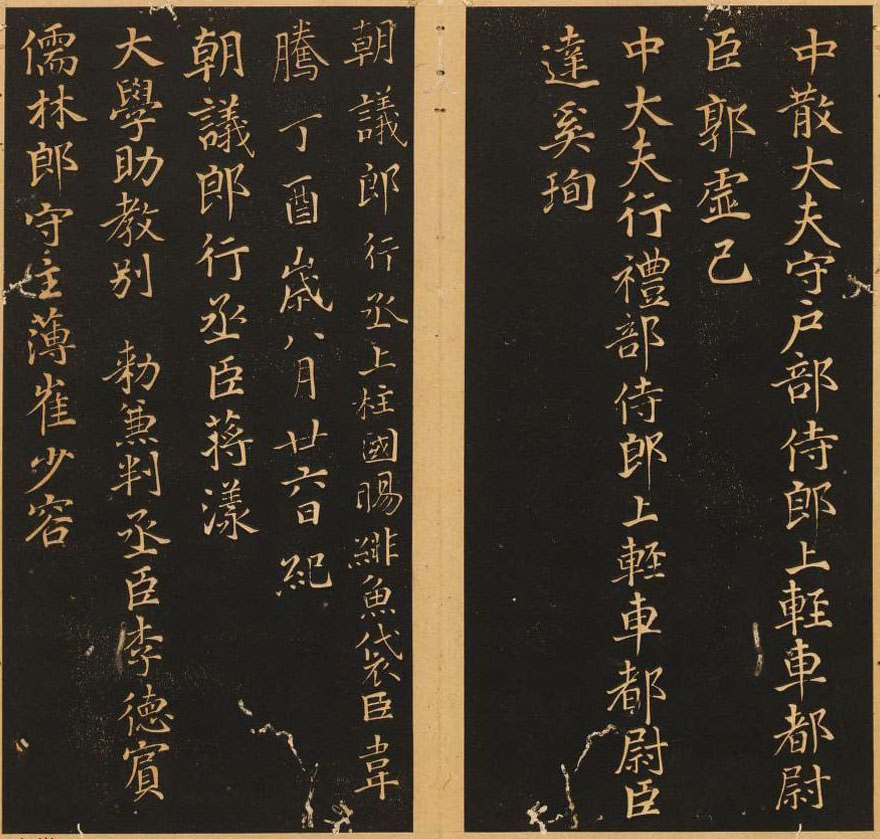 中散大夫守戶部侍郎上輕車都尉
臣郭虛己
中大夫行禮部侍郎上輕車都尉臣
達奚珣
朝議郎行丞上柱國賜緋魚袋臣韋
騰丁酉歲八月廿六日紀
朝議郎行丞臣蔣漾
大學助教別 勑兼判丞臣李德賓
儒林郎守主薄崔少容